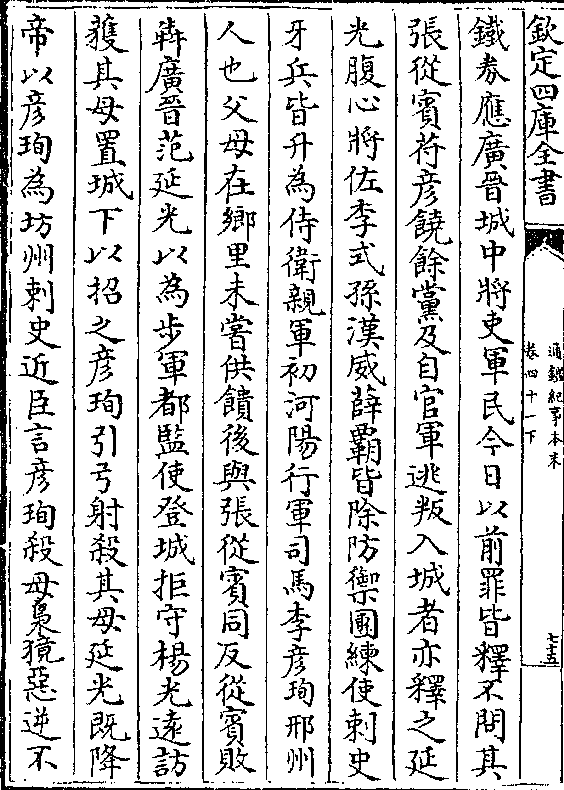 欽定四庫全書
通鑑紀事本末
卷四十一下
七十五
鐵券應廣晉城中將吏軍民今日以前罪皆釋不問其
張從賓符彦饒餘黨及自官軍逃叛入城者亦釋之延
光腹心將佐李式孫漢威薛霸皆除防禦團練使刺史
牙兵皆升為侍衛親軍初河陽行軍司馬李彦珣邢州
人也父母在鄉里未嘗供饋後與張從賓同反從賓敗
犇廣晉范延光以為步軍都監使登城拒守楊光遠訪
獲其母置城下以招之彦珣引弓射殺其母延光既降
帝以彦珣為坊州刺史近臣言彦珣殺母梟獍惡逆不